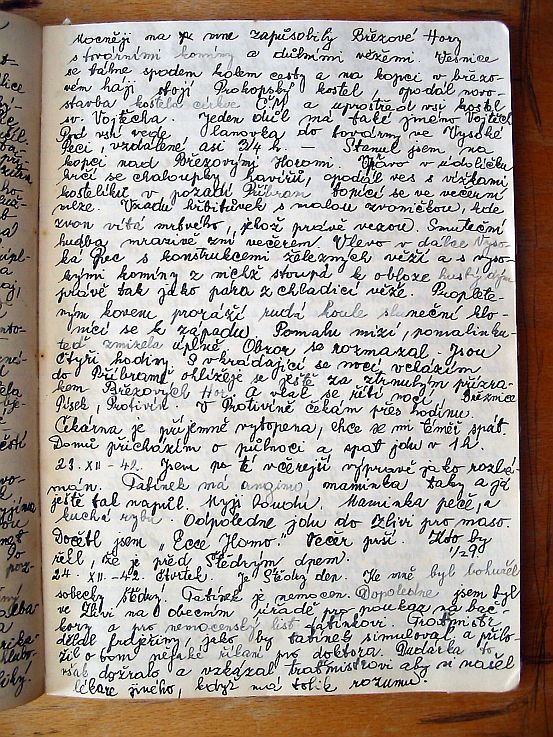 Mocněji na mne zapůsobily Březové Hory
s továrními komíny a důlními věžemi. Vesnice
se táhne spodem kolem cesty a na kopci v březo-
vém háji stojí Prokopský kostel, opodál novo-
stavba kostela církve ČM a uprostřed vsi kostel
sv. Vojtěcha. Jeden důl má také jméno Vojtěch
Pod vsí vede lanovka do továrny ve Vysoké
Peci, vzdálené asi 3/4 h. — Stanul jsem na
kopci nad Březovými Horami. Vpravo v údolíčku
krčí se chaloupky havířů, opodál ves s věžkami
kostelíků v pozadí Příbram topící se ve večerní
mlze. Vzadu hřbitůvek s malou zvoničkou, kde
zvon vítá mrtvého, jehož právě vezou. Smuteční
hudba mrazivě zní večerem. Vlevo v dálce Vyso-
ká Pec s konstrukcemi železných věží a s vyso-
kými komíny z nichž stoupá k obloze hustý dým
právě tak jako pára z chladící věže. Proplete-
ným kovem proráží rudá koule sluneční klo-
nící se k západu. Pomalu mizí, pomalinku
teď zmizela úplně. Obzor se rozmazal. Jsou
čtyři hodiny. S vkrádající se nocí vcházím
do Příbrami ohlížeje se ještě za ztrnulým přízra-
kem Březových Hor. A vlak se řítí nocí. Březnice
Písek, Protivín. V Protivíně čekám přes hodinu.
Čekárna je příjemně vytopena, chce se mi téměř spát
Domů přicházím o půlnoci a spát jdu v 1 h.
23. XII - 42. Jsem po té včerejší výpravě jako rozlá-
mán. Tatínek má angínu maminka taky a já
ještě tak napůl. Myji loudu. Maminka peče, a
kuchá rybu. Odpoledne jdu do Zlivi pro maso.
Dočetl jsem "Ecce Homo." Večer prší. Kdo by
řekl, že je před Štědrým dnem. 1/29.
24. XII - 42 čtvrtek. Je Štědrý den. Ke mně byl bohužel
sobecky štědrý. Tatínek je nemocen. Dopoledne jsem byl
ve Zlivi na obecním úřadě pro poukaz na bač-
kory a pro nemocenský list tatínkovi. Tratmistr
dělal frdjeřiny, jako by tatínek simuloval, a přilo-
žil o tom nějaké říkání pro doktora. Dudáka to
však dožralo a vzkázal tratmistrovi aby si našel
lékaře jiného, když má tolik rozumu.